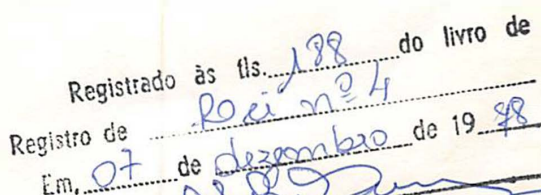 Registrado às fls. 188 do livro de
Registro de Lei nº 4
Em, 07 de dezembro de 19 78